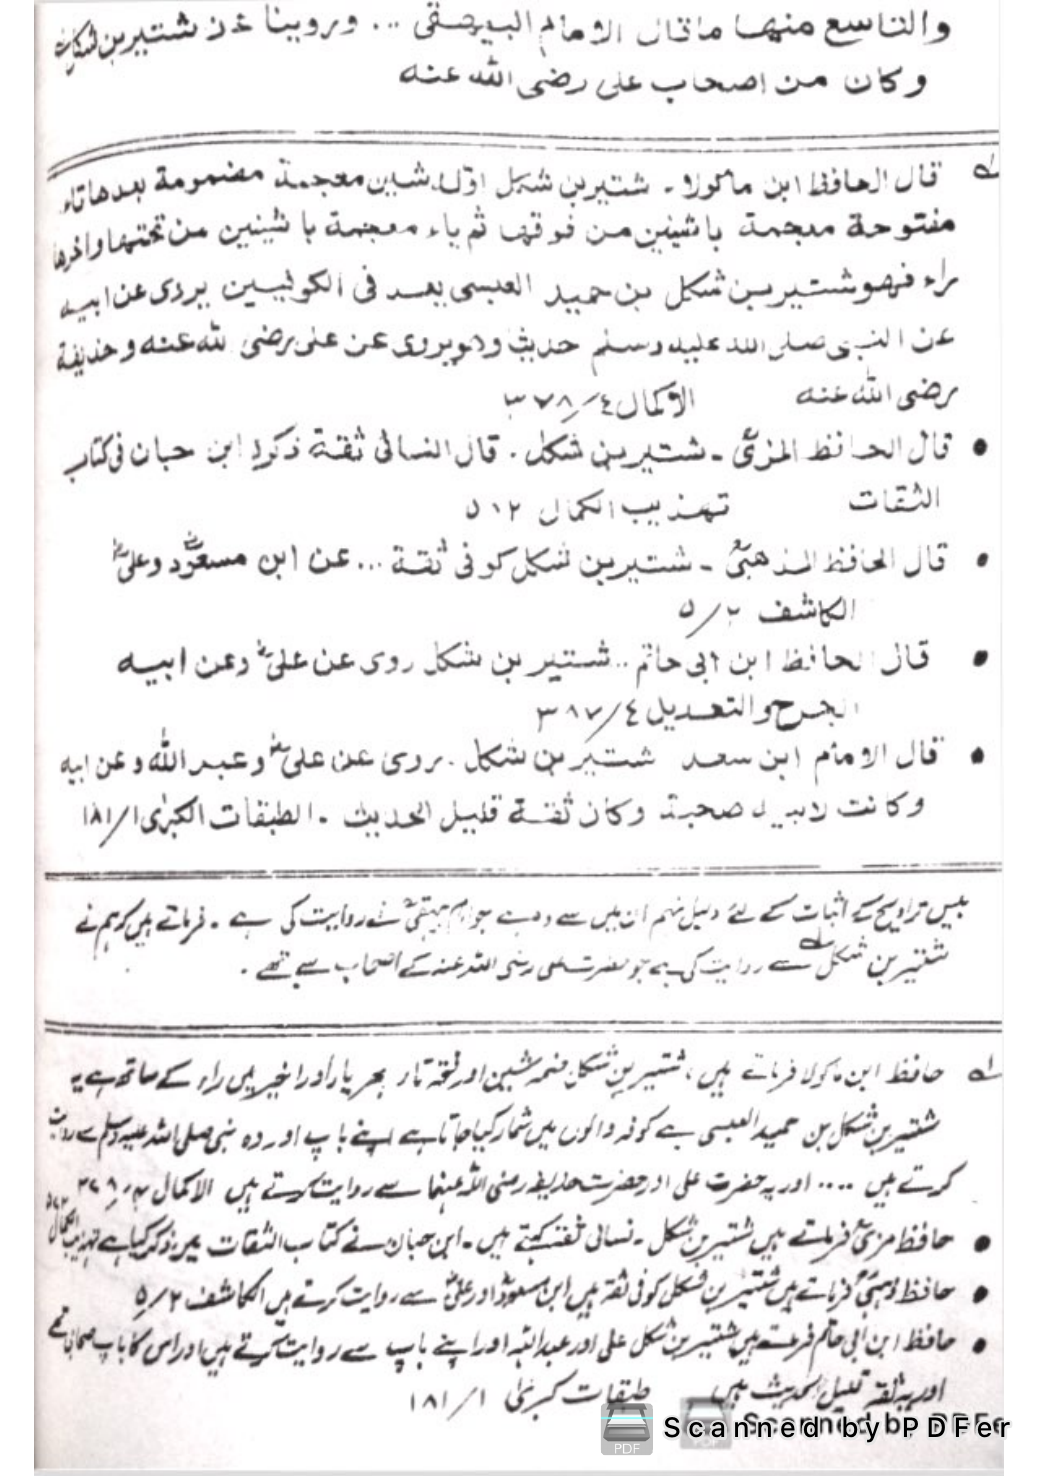 والتاسع منها ما قال الامام البیهقی ... وروینا عن شتیر بن شکل
وکان من اصحاب علی رضی الله عنه
لے قال الحافظ ابن ماکولا ۔ شتیر بن شکل اوله شین معجمة مضمومة بعدها تاء
مفتوحة معجمة باثنین من فوقها ثم یاء معجمة باثنین من تحتها واخرها
راء فهو شتیر بن شکل بن حمید العبسی یعد فی الکوفیین یروی عن ابیه
عن النبی صلی الله علیه وسلم حدیث وهو یروی عن علی رضی الله عنه وحذیفة
رضی الله عنه الاکمال ٤/٣٧٨
• قال الحافظ المزیؒ ۔ شتیر بن شکل . قال النسائی ثقة ذکره ابن حبان فی کتاب
الثقات تهذیب الکمال ٥١٢
• قال الحافظ الذهبیؒ ۔ شتیر بن شکل کوفی ثقة ... عن ابن مسعودؓ وعلیؓ
الکاشف ٥/٢
• قال الحافظ ابن ابی حاتم .. شتیر بن شکل روی عن علیؓ وعن ابیه
الجرح والتعدیل ٣٨٧/٤
• قال الامام ابن سعد شتیر بن شکل . روی عن علیؓ وعبد الله وعن ابیه
وکانت لابیه صحبة وکان ثقة قلیل الحدیث ۔ الطبقات الکبریٰ ١٨١/١
بیس تراویح کے اثبات کے لئے دلیل نہم ان میں سے وہ ہے جو امام بیہقیؒ نے روایت کی ہے ۔ فرماتے ہیں کہ ہم نے
شتیر بن شکل لے سے روایت کی ہے جو حضرت علی رضی اللہ عنہ کے اصحاب سے تھے ۔
لے حافظ ابن ماکولا فرماتے ہیں ، شتیر بن شکل ضمہ شین اور فتحہ تاء پھر یاء اور اخیر میں راء کے ساتھ ہے یہ
شتیر بن شکل بن حمید العبسی ہے کوفہ والوں میں شمار کیا جاتا ہے اپنے باپ اور وہ نبی صلی اللہ علیہ وسلم سے روایت
کرتے ہیں .... اور یہ حضرت علی اور حضرت حذیفہ رضی اللہ عنہما سے روایت کرتے ہیں الاکمال ٣٧٨/٤
• حافظ مزیؒ فرماتے ہیں شتیر بن شکل ۔ نسائی ثقہ کہتے ہیں ۔ ابن حبان نے کتاب الثقات میں ذکر کیا ہے تہذیب الکمال
• حافظ ذہبیؒ فرماتے ہیں شتیر بن شکل کوفی ثقہ ہیں ابن مسعودؓ اور علیؓ سے روایت کرتے ہیں الکاشف ٥/٢
• حافظ ابن ابی حاتم فرماتے ہیں شتیر بن شکل علی اور عبداللہ اور اپنے باپ سے روایت کرتے ہیں اور اس کا باپ صحابی تھے
اور یہ ثقہ قلیل الحدیث ہیں طبقات کبریٰ ١٨١/١
Scanned by PDFer